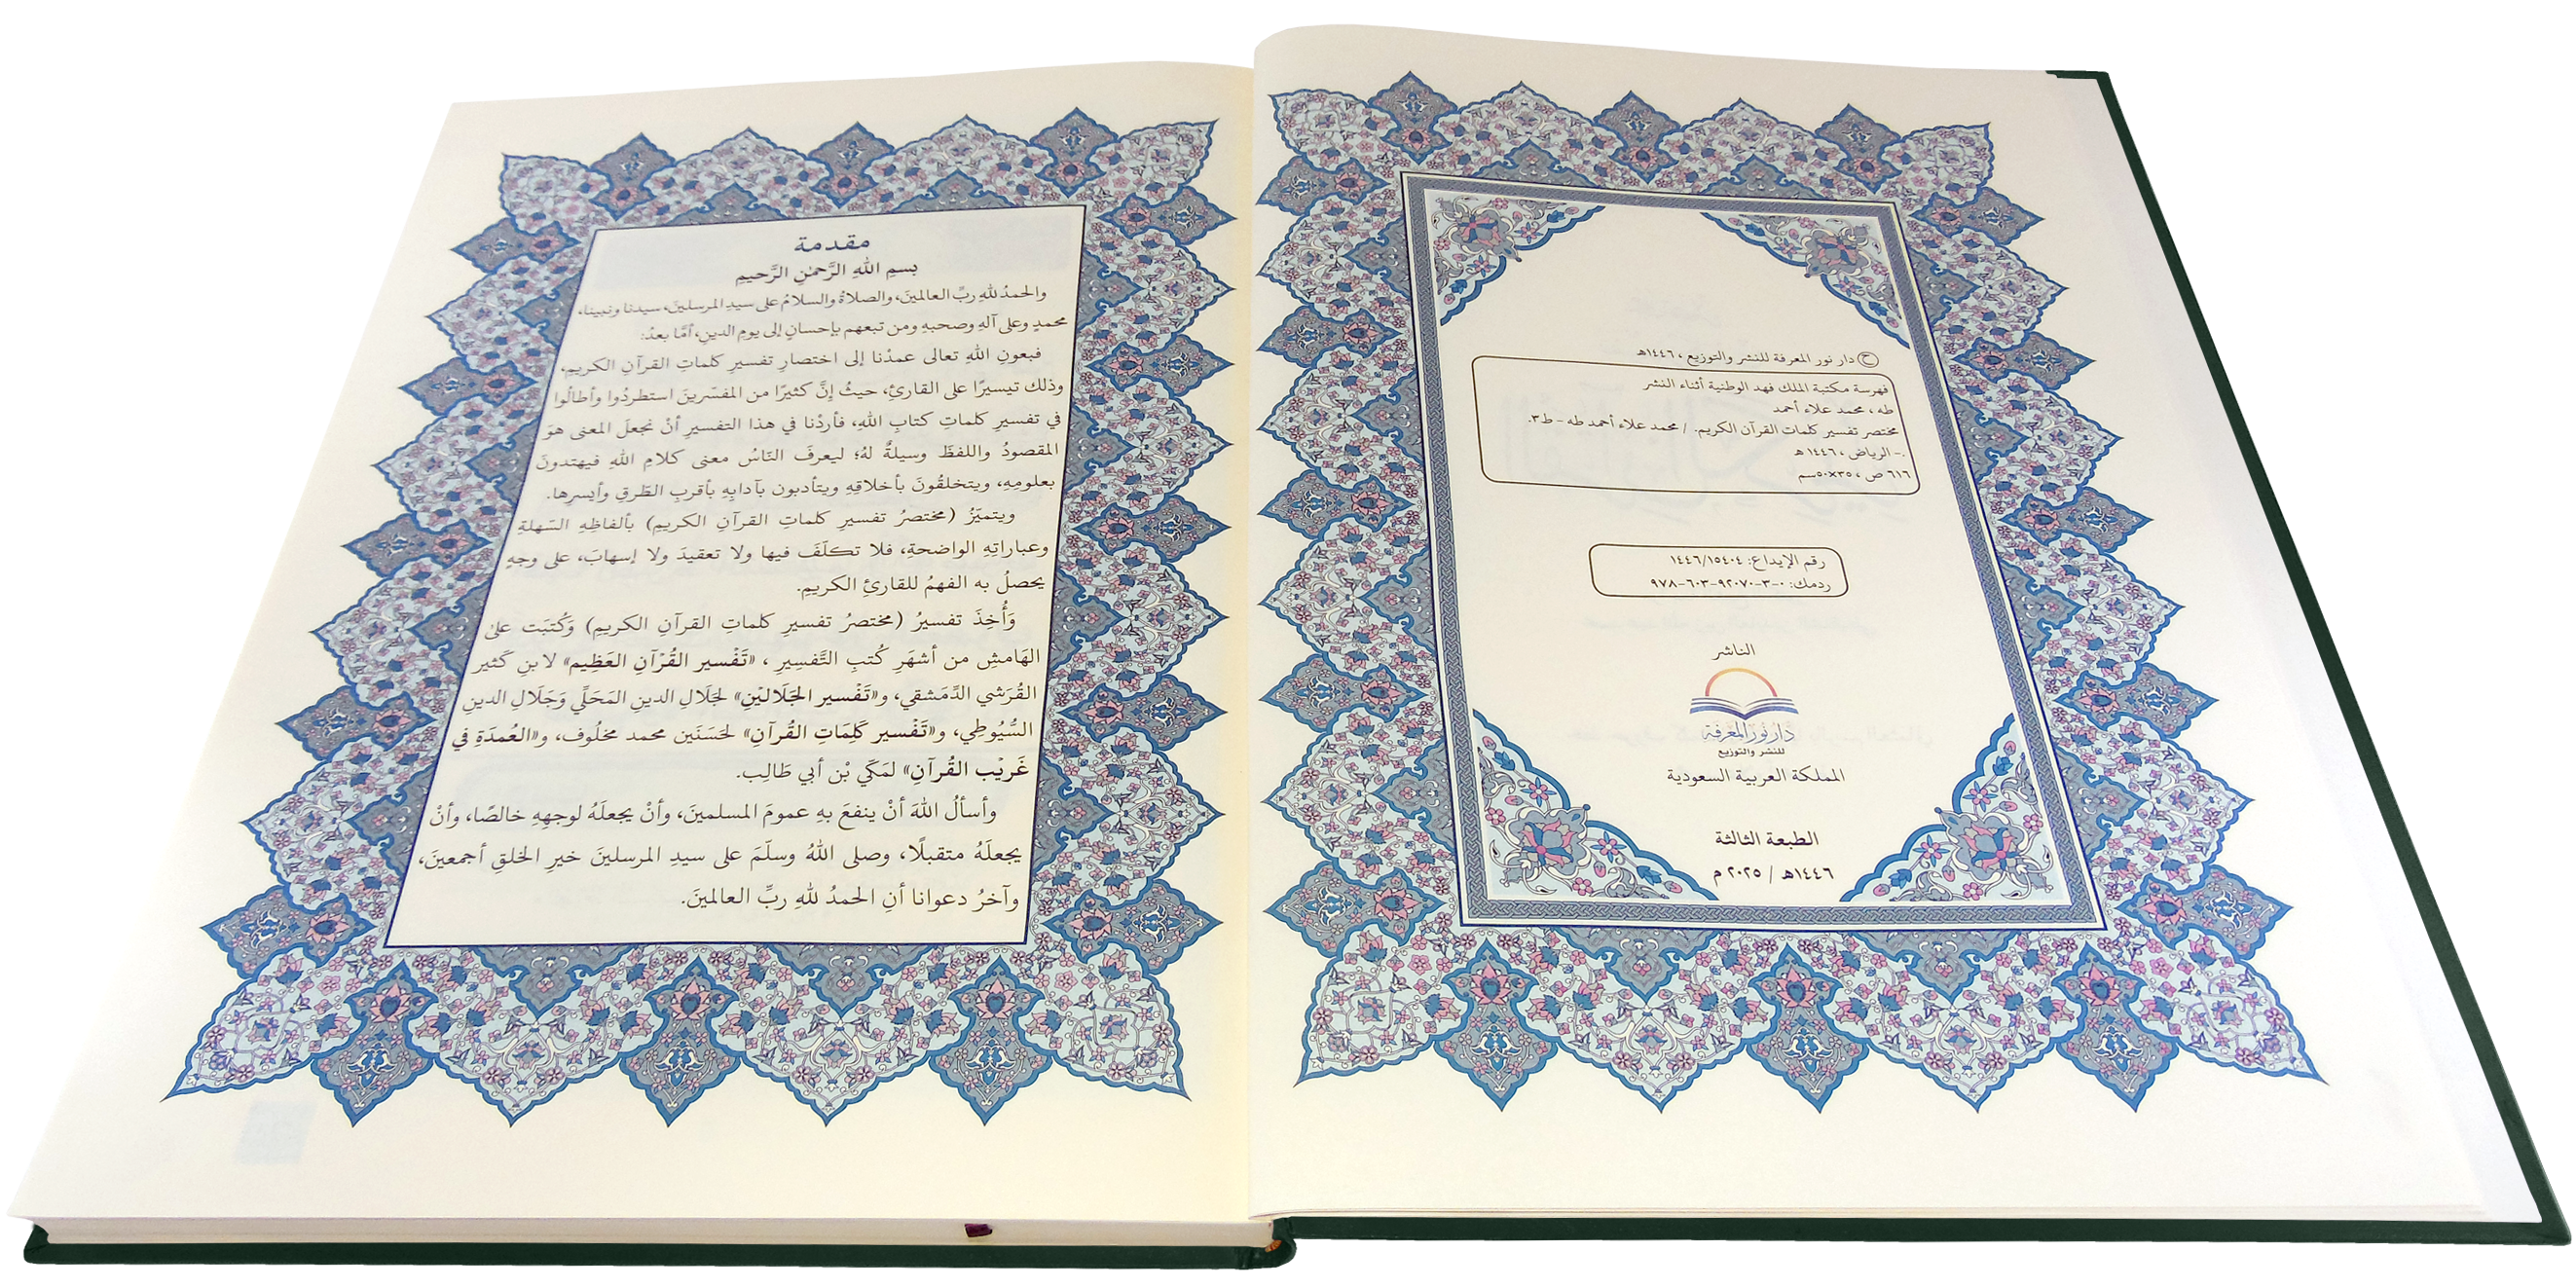 ح دار نور المعرفة للنشر والتوزيع ، ١٤٤٦هـ
فهرسة مكتبة الملك فهد الوطنية أثناء النشر
طه ، محمد علاء أحمد
مختصر تفسير كلمات القرآن الكريم. / محمد علاء أحمد طه - ط٣.
.- الرياض ، ١٤٤٦ هـ
٦١٦ ص ، ٣٥×٥٠سم
رقم الإيداع: ١٤٤٦/١٥٤٠٤
ردمك: ٠-٣-٩٢٠٧٠-٦٠٣-٩٧٨
الناشر
دار نور المعرفة
للنشر والتوزيع
المملكة العربية السعودية
الطبعة الثالثة
١٤٤٦هـ / ٢٠٢٥ م
مقدمة
بسمِ اللهِ الرَّحمٰنِ الرَّحيمِ
والحمدُ للهِ ربِّ العالمينَ، والصلاةُ والسلامُ على سيدِ المرسلينَ، سيدنا ونبينا،
محمدٍ وعلى آلهِ وصحبهِ ومن تبعهم بإحسانٍ إلى يومِ الدينِ، أمَّا بعدُ:
فبعونِ اللهِ تعالى عمدْنا إلى اختصارِ تفسيرِ كلماتِ القرآنِ الكريمِ،
وذلك تيسيرًا على القارئِ، حيثُ إنَّ كثيرًا من المفسّرينَ استطردُوا وأطالُوا
في تفسيرِ كلماتِ كتابِ اللهِ، فأردْنا في هذا التفسيرِ أنْ نجعلَ المعنى هوَ
المقصودُ واللفظَ وسيلةٌ لهُ؛ ليعرفَ النّاسُ معنى كلامِ اللهِ فيهتدونَ
بعلومِهِ، ويتخلقُونَ بأخلاقِهِ ويتأدبون بآدابِهِ بأقربِ الطّرقِ وأيسرِها.
ويتميّزُ (مختصرُ تفسيرِ كلماتِ القرآنِ الكريمِ) بألفاظِهِ السّهلةِ
وعباراتِهِ الواضحةِ، فلا تكلّفَ فيها ولا تعقيدَ ولا إسهابَ، على وجهٍ
يحصلُ به الفهمُ للقارئِ الكريمِ.
وَأُخِذَ تفسيرُ (مختصرُ تفسيرِ كلماتِ القرآنِ الكريمِ) وَكُتبَت على
الهَامشِ من أشهَرِ كُتبِ التَّفسِيرِ ، «تَفْسير القُرْآنِ العَظِيم» لابنِ كَثير
القُرَشي الدِّمَشقي، و«تَفْسير الجَلَاليْنِ» لجَلَالِ الدينِ المَحَلّي وَجَلَالِ الدينِ
السُّيُوطِي، و«تَفْسير كَلِمَاتِ القُرآنِ» لحَسَنَين محمد مخلُوف، و«العُمدَةِ في
غَريْب القُرآنِ» لمَكّي بْن أبي طَالِب.
وأسألُ اللهَ أنْ ينفعَ بهِ عمومَ المسلمينَ، وأنْ يجعلَهُ لوجهِهِ خالصًا، وأنْ
يجعلَهُ متقبلًا، وصلى اللهُ وسلّمَ على سيدِ المرسلينَ خيرِ الخلقِ أجمعينَ،
وآخرُ دعوانا أنِ الحمدُ للهِ ربِّ العالمينَ.